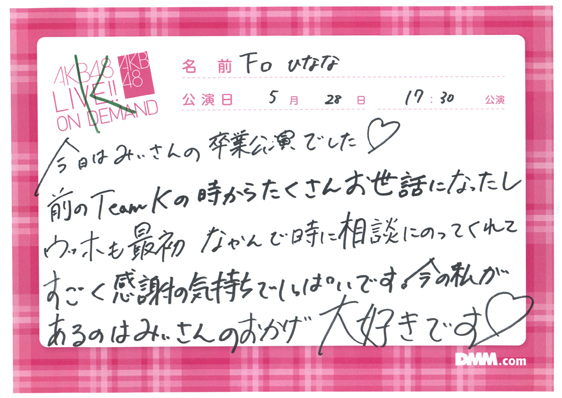 AKB48
LIVE!!
ON DEMAND
AKB
48
K
名 前 Fo ひなな
公演日 5 月 28 日 17:30 公演
今日はみぃさんの卒業公演でした♡
前のTeamKの時からたくさんお世話になったし
ウッホも最初なやんで時に相談にのってくれて
すごく感謝の気持ちでいっぱいです。今の私が
あるのはみぃさんのおかげ 大好きです♡
DMM.com